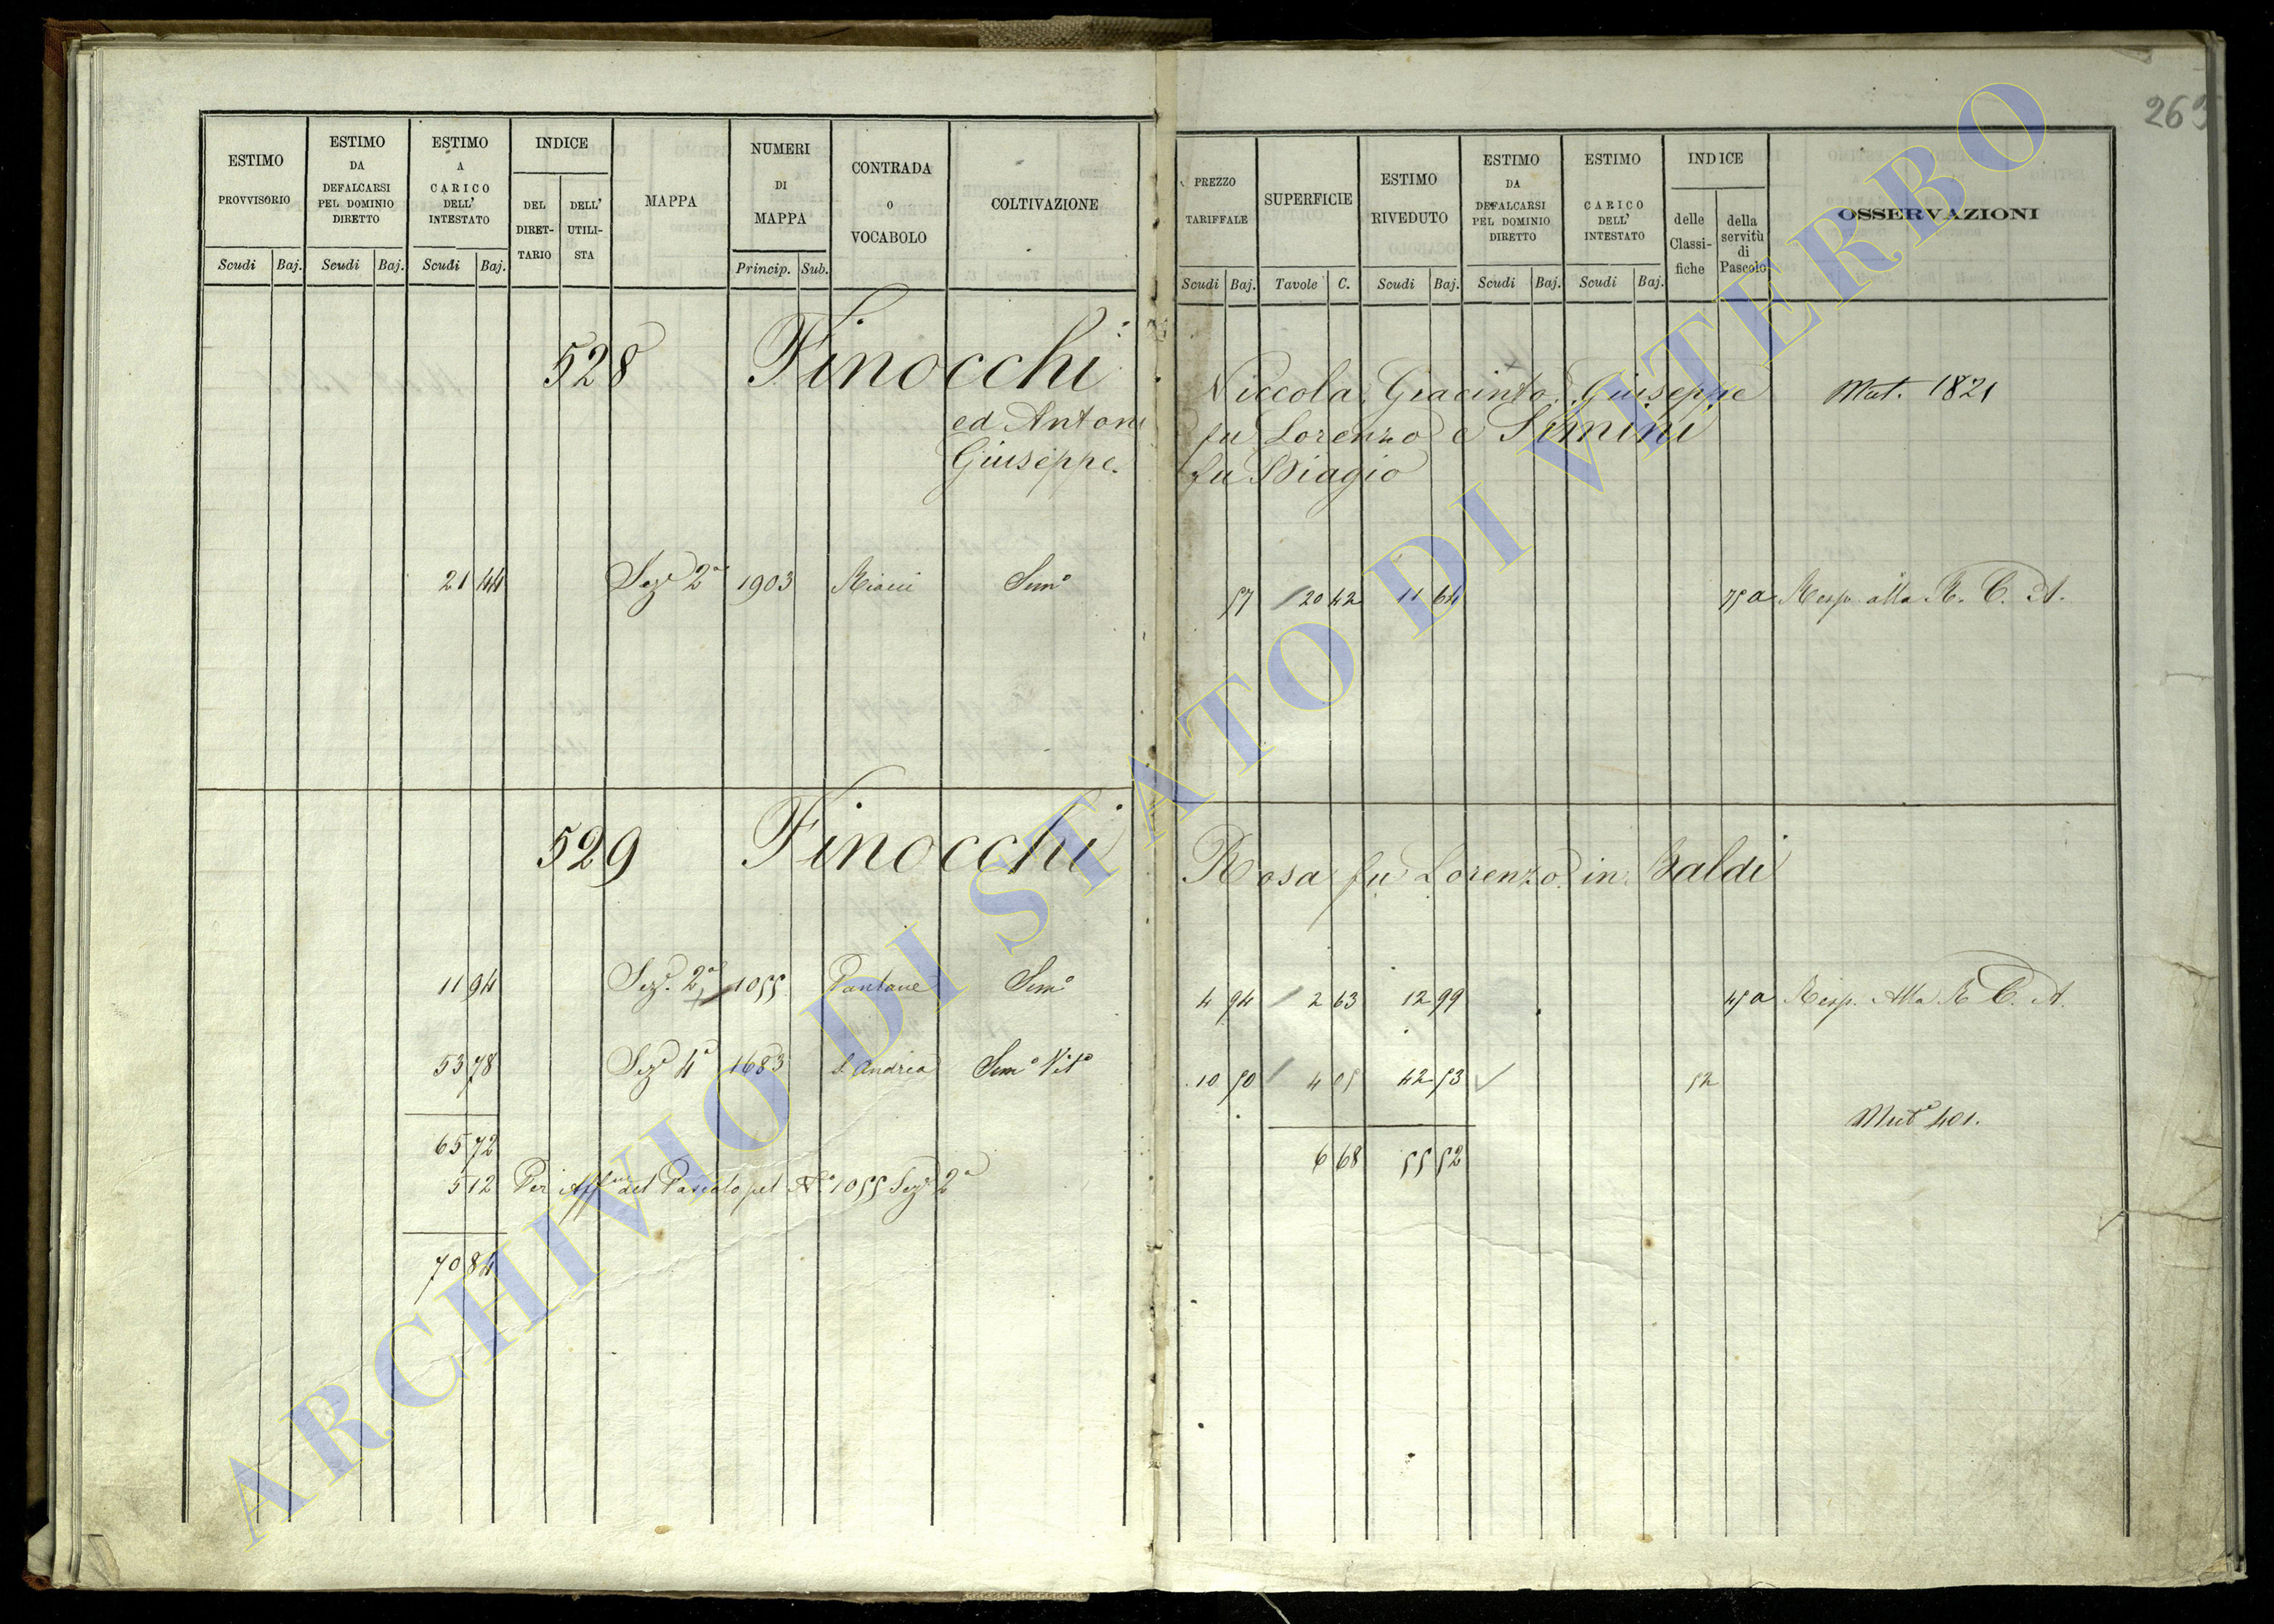 263
ESTIMO PROVVISORIO
Scudi Baj.
ESTIMO DA DEFALCARSI PEL DOMINIO DIRETTO
Scudi Baj.
ESTIMO A CARICO DELL' INTESTATO
Scudi Baj.
INDICE
DEL DIRET- TARIO
DELL' UTILI- STA
MAPPA
NUMERI DI MAPPA
Princip. Sub.
CONTRADA O VOCABOLO
COLTIVAZIONE
PREZZO TARIFFALE
Scudi Baj.
SUPERFICIE
Tavole C.
ESTIMO RIVEDUTO
Scudi Baj.
ESTIMO DA DEFALCARSI PEL DOMINIO DIRETTO
Scudi Baj.
ESTIMO A CARICO DELL' INTESTATO
Scudi Baj.
INDICE
delle Classi- fiche
della servitù di Pascolo
OSSERVAZIONI
528 Finocchi Niccola, Giacinto, Giuseppe Mut. 1821
ed Antonio fu Lorenzo e Simini
Giuseppe fu Biagio
21 44 Sez.e 2a 1903 Semo 57 20 42 11 64 75 a Resp. alla R. C. A.
529 Finocchi Rosa fu Lorenzo in Baldi
11 94 Sez.e 2a 1055 Pantane Semo 4 94 2 63 12 99 45 a Resp. Alla R. C. A.
53 78 Sez.e 4a 1683 S. Andrea Semo Vito 10 50 4 05 42 53 52
Muta 401.
65 72 6 68 55 52
5 12 Per Aff.ne del Pascolo pel No 1055 Sez.e 2a
70 84
ARCHIVIO DI STATO DI VITERBO